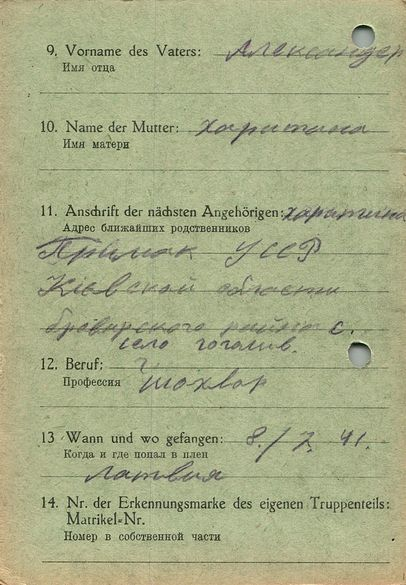 9. Vorname des Vaters: Александер
Имя отца
10. Name der Mutter: Харитина
Имя матери
11. Anschrift der nächsten Angehörigen: Харитина
Адрес ближайших родственников
Прымак УССР
Кіевской области
броварского района с.
село гоголив.
12. Beruf:
Профессия Шохвор
13 Wann und wo gefangen: 8./7. 41.
Когда и где попал в плен
Латвия
14. Nr. der Erkennungsmarke des eigenen Truppenteils:
Matrikel-Nr.
Номер в собственной части